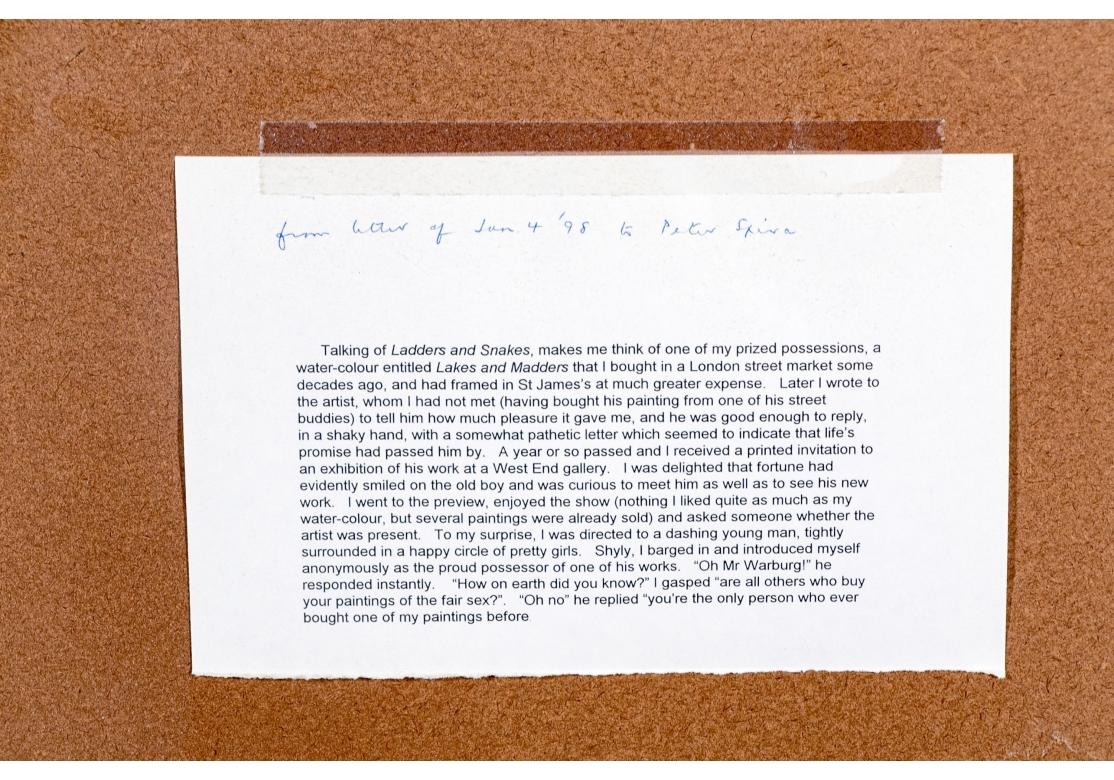 from letter of Jan. 4 '98 to Peter Spira
Talking of Ladders and Snakes, makes me think of one of my prized possessions, a
water-colour entitled Lakes and Madders that I bought in a London street market some
decades ago, and had framed in St James's at much greater expense.   Later I wrote to
the artist, whom I had not met (having bought his painting from one of his street
buddies) to tell him how much pleasure it gave me, and he was good enough to reply,
in a shaky hand, with a somewhat pathetic letter which seemed to indicate that life's
promise had passed him by.   A year or so passed and I received a printed invitation to
an exhibition of his work at a West End gallery.   I was delighted that fortune had
evidently smiled on the old boy and was curious to meet him as well as to see his new
work.   I went to the preview, enjoyed the show (nothing I liked quite as much as my
water-colour, but several paintings were already sold) and asked someone whether the
artist was present.   To my surprise, I was directed to a dashing young man, tightly
surrounded in a happy circle of pretty girls.   Shyly, I barged in and introduced myself
anonymously as the proud possessor of one of his works.   “Oh Mr Warburg!” he
responded instantly.   “How on earth did you know?” I gasped “are all others who buy
your paintings of the fair sex?”.   “Oh no” he replied “you're the only person who ever
bought one of my paintings before